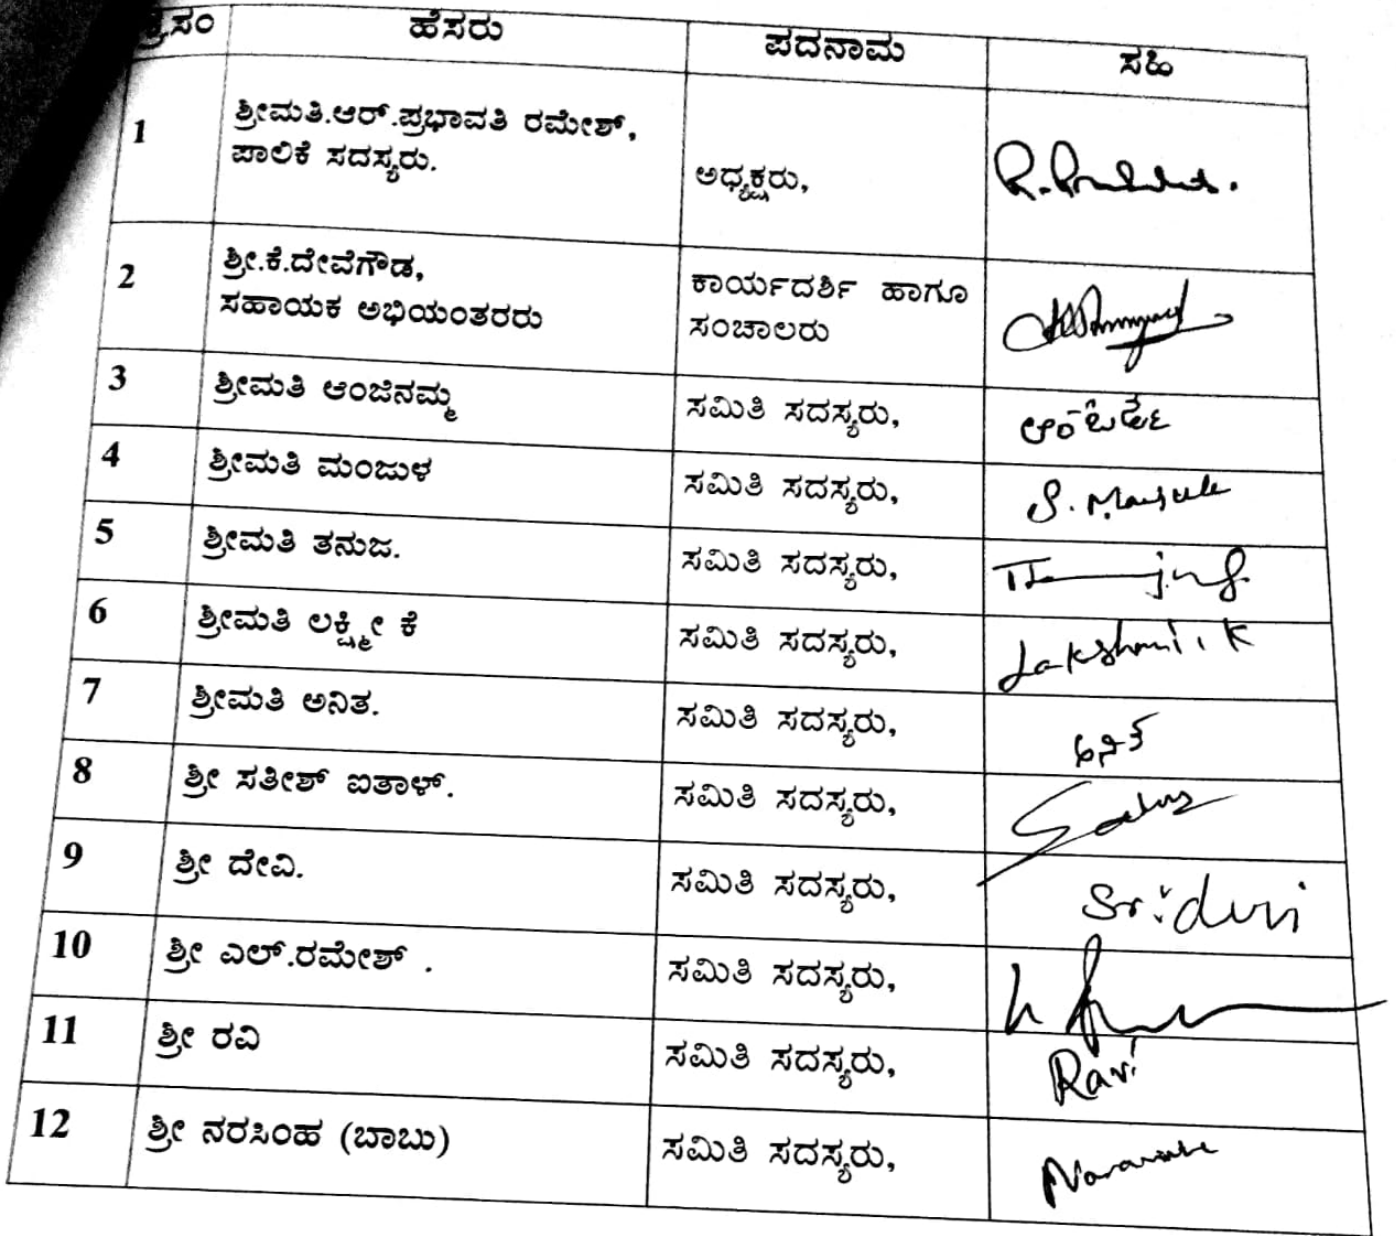 ಕ್ರ.ಸಂ ಹೆಸರು ಪದನಾಮ ಸಹಿ
1 ಶ್ರೀಮತಿ.ಆರ್.ಪ್ರಭಾವತಿ ರಮೇಶ್,
ಪಾಲಿಕೆ ಸದಸ್ಯರು. ಅಧ್ಯಕ್ಷರು,
2 ಶ್ರೀ.ಕೆ.ದೇವೆಗೌಡ, ಕಾರ್ಯದರ್ಶಿ ಹಾಗೂ
ಸಹಾಯಕ ಅಭಿಯಂತರರು ಸಂಚಾಲರು
3 ಶ್ರೀಮತಿ ಆಂಜಿನಮ್ಮ ಸಮಿತಿ ಸದಸ್ಯರು,
4 ಶ್ರೀಮತಿ ಮಂಜುಳ ಸಮಿತಿ ಸದಸ್ಯರು, S.
5 ಶ್ರೀಮತಿ ತನುಜ. ಸಮಿತಿ ಸದಸ್ಯರು,
6 ಶ್ರೀಮತಿ ಲಕ್ಷ್ಮೀ ಕೆ ಸಮಿತಿ ಸದಸ್ಯರು, Lakshmi. K
7 ಶ್ರೀಮತಿ ಅನಿತ. ಸಮಿತಿ ಸದಸ್ಯರು, ಅನಿತ
8 ಶ್ರೀ ಸತೀಶ್ ಐತಾಳ್. ಸಮಿತಿ ಸದಸ್ಯರು,
9 ಶ್ರೀ ದೇವಿ. ಸಮಿತಿ ಸದಸ್ಯರು, Sridevi
10 ಶ್ರೀ ಎಲ್.ರಮೇಶ್ . ಸಮಿತಿ ಸದಸ್ಯರು,
11 ಶ್ರೀ ರವಿ ಸಮಿತಿ ಸದಸ್ಯರು, Ravi
12 ಶ್ರೀ ನರಸಿಂಹ (ಬಾಬು) ಸಮಿತಿ ಸದಸ್ಯರು,